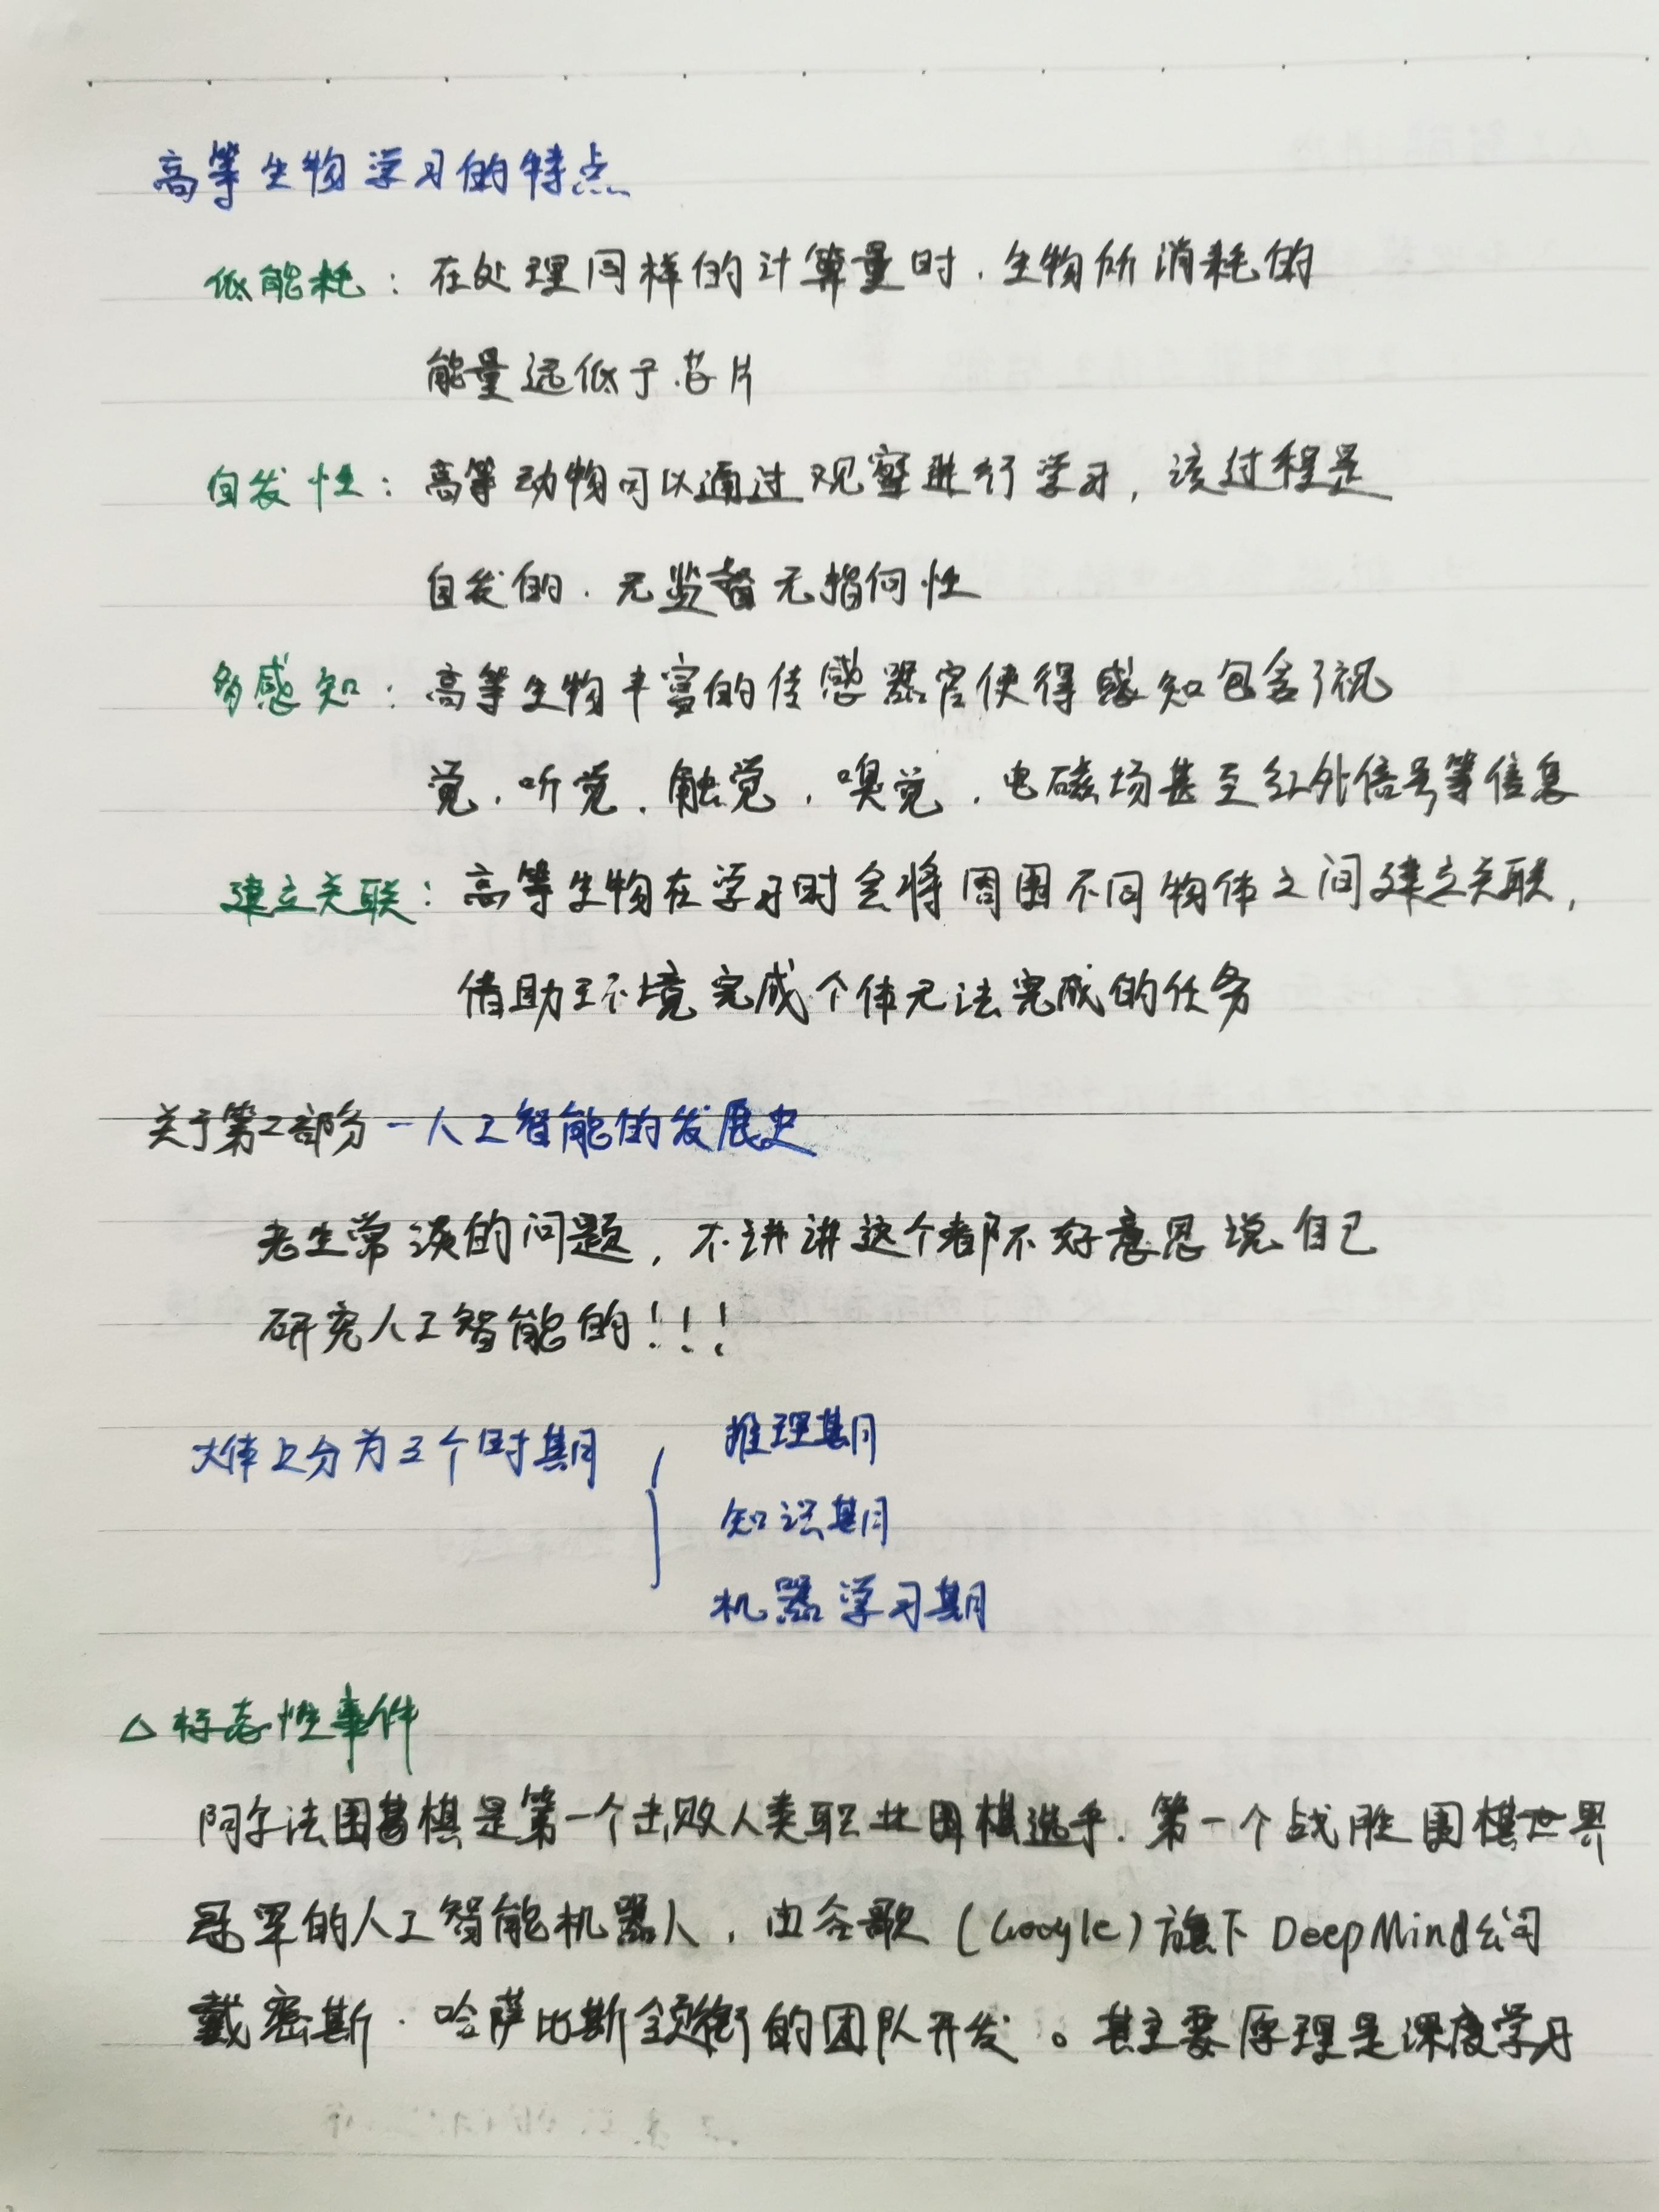 高等生物学习的特点
低能耗：在处理同样的计算量时，生物所消耗的
能量远低于芯片
自发性：高等动物可以通过观察进行学习，该过程是
自发的、无监督无指向性
多感知：高等生物丰富的传感器官使得感知包含了视
觉、听觉、触觉、嗅觉、电磁场甚至红外信号等信息
建立关联：高等生物在学习时会将周围不同物体之间建立关联，
借助环境完成个体无法完成的任务
关于第2部分－人工智能的发展史
老生常谈的问题，不讲讲这个都不好意思说自己
研究人工智能的！！！
大体上分为3个时期
推理期
知识期
机器学习期
△标志性事件
阿尔法围棋是第一个击败人类职业围棋选手、第一个战胜围棋世界
冠军的人工智能机器人，由谷歌（Google）旗下DeepMind公司
戴密斯·哈萨比斯领衔的团队开发。其主要原理是深度学习